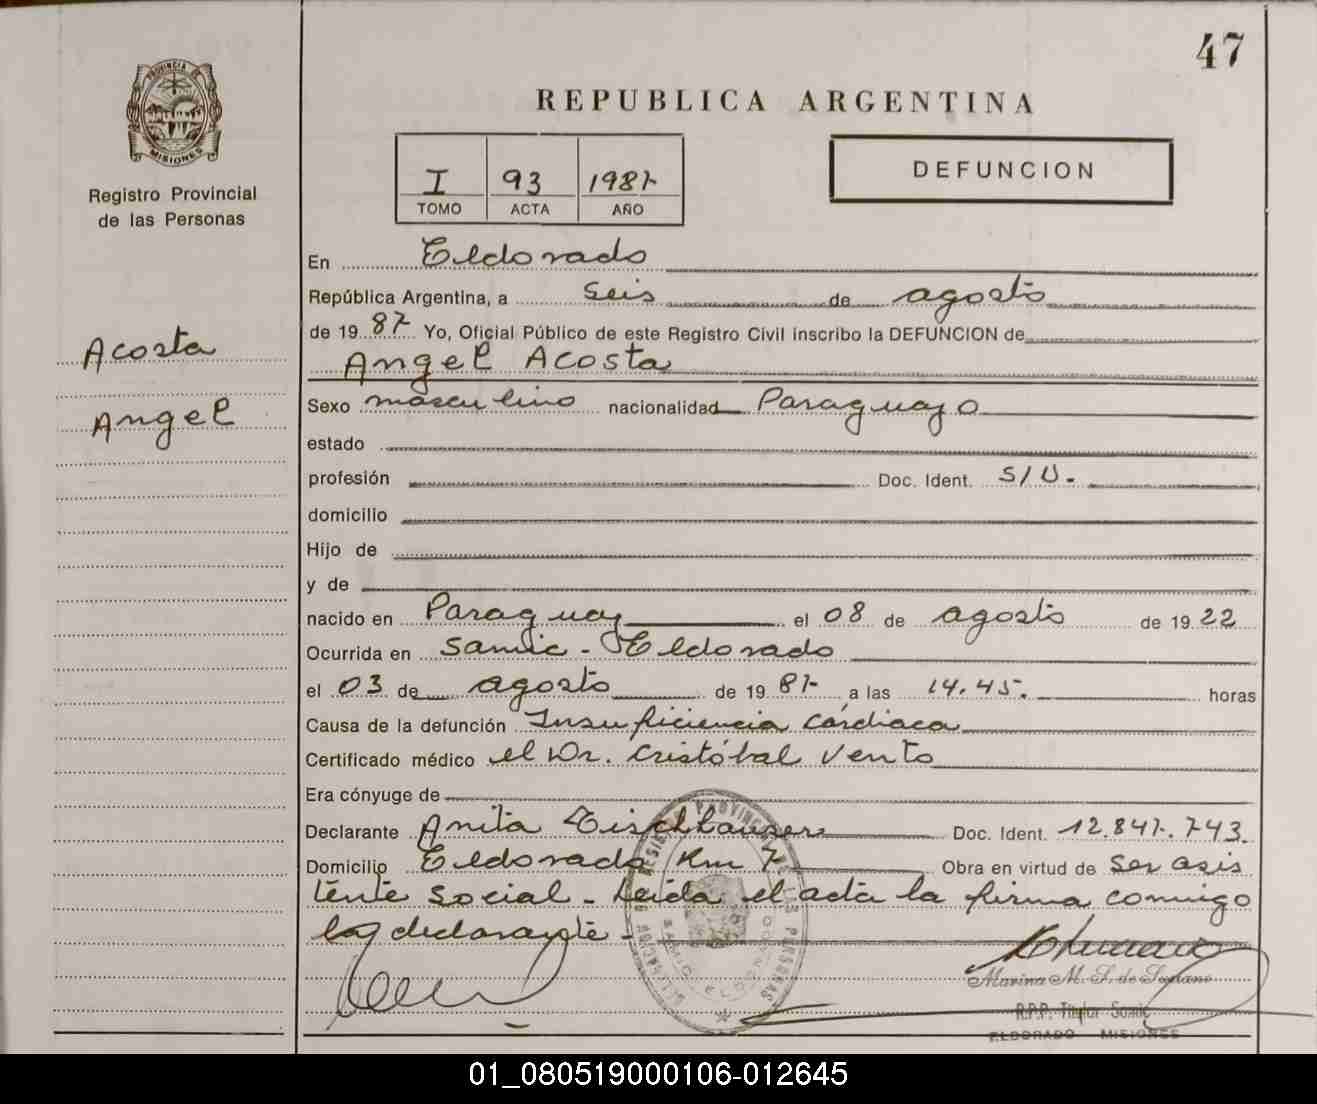 47
REPUBLICA ARGENTINA
PROVINCIA DE
MISIONES
Registro Provincial
de las Personas
I 93 1987
TOMO ACTA AÑO
DEFUNCION
Acosta
Angel
En Eldorado
República Argentina, a seis de agosto
de 19 87 Yo, Oficial Público de este Registro Civil inscribo la DEFUNCION de
Angel Acosta
Sexo masculino nacionalidad Paraguayo
estado
profesión Doc. Ident. S/U.
domicilio
Hijo de
y de
nacido en Paraguay el 08 de agosto de 19 22
Ocurrida en Samic - Eldorado
el 03 de agosto de 19 87 a las 14.45. horas
Causa de la defunción Insuficiencia cardiaca
Certificado médico el Dr. Cristóbal Vento
Era cónyuge de
Declarante Anita Tischhauser Doc. Ident. 12.847.743.
Domicilio Eldorado Km 7 Obra en virtud de ser asis
tente social - Leida el acta la firma conmigo
la declarante -
Marina M. S. de Soprano
R.P.P. Titular Samic
ELDORADO MISIONES
01_080519000106-012645